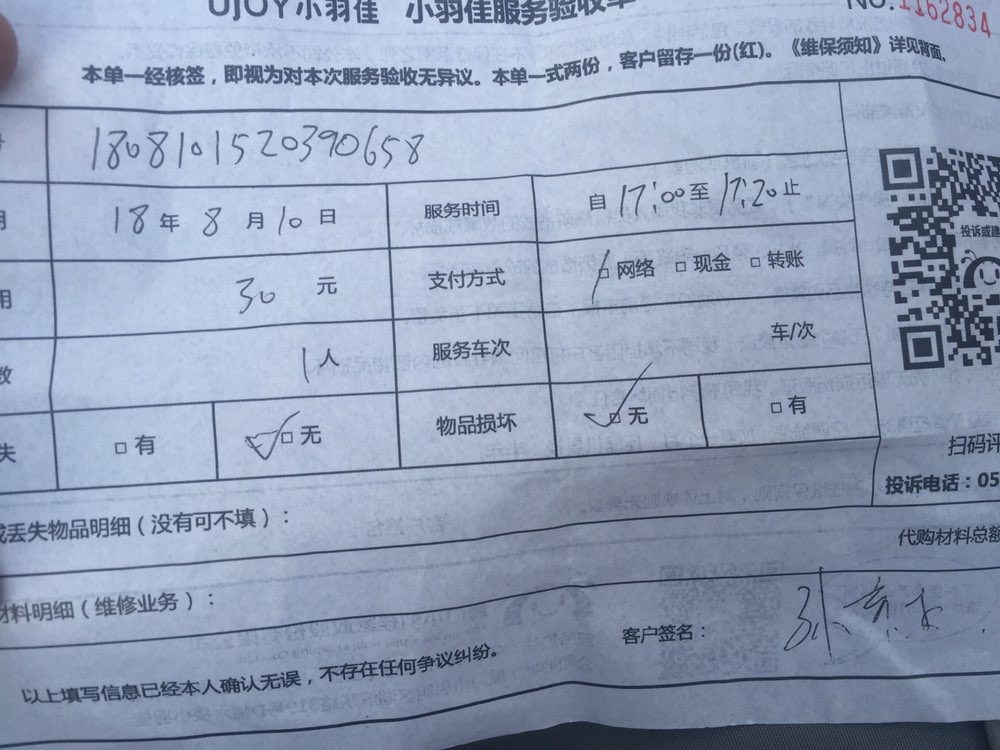 UJOY小羽佳 小羽佳服务验收单
NO.1162834
本单一经核签，即视为对本次服务验收无异议。本单一式两份，客户留存一份(红)。《维保须知》详见背面。
1808101520390658
18年8月10日 服务时间 自17:00至17:20止
用 30元 支付方式 □网络 □现金 □转账
数 1人 服务车次 车/次
失 □有 □无 物品损坏 □无 □有
投诉或建
扫码评
投诉电话：05
或丢失物品明细（没有可不填）：
代购材料总额
材料明细（维修业务）：
客户签名：
以上填写信息已经本人确认无误，不存在任何争议纠纷。